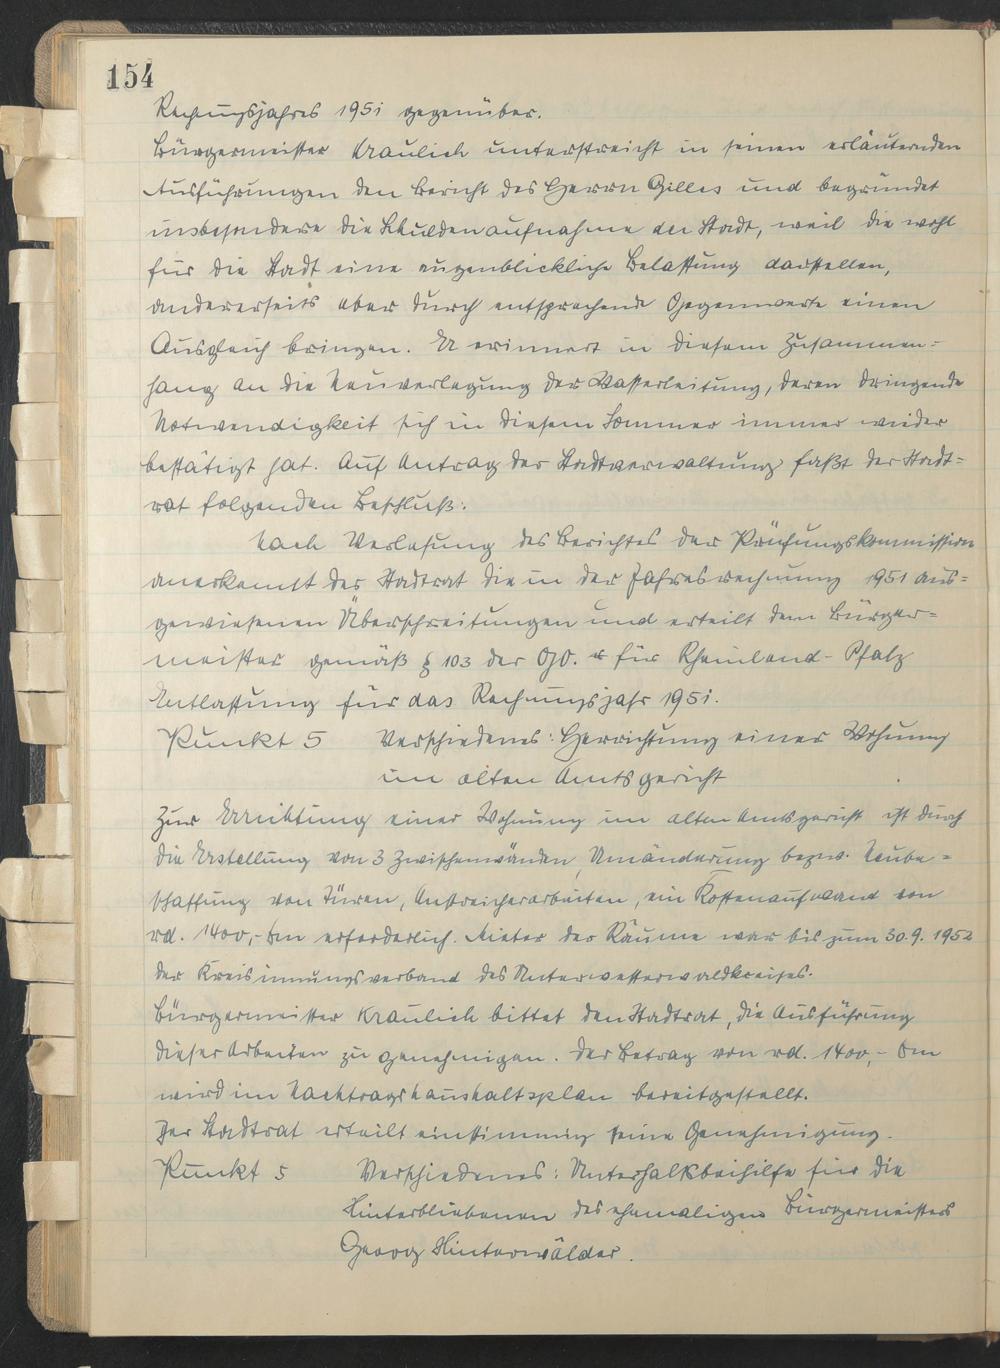 154
Rechnungsjahres 1951 gegenüber.
Bürgermeister Kraulich unterstreicht in seinen erläuternden
Ausführungen den Bericht des Herrn Gilles und begründet
insbesondere die Schuldenaufnahme der Stadt, weil die wohl
für die Stadt eine augenblickliche Belastung darstellen,
andererseits aber durch entsprechende Gegenwerte einen
Ausgleich bringen. Er erinnert in diesem Zusammen=
hang an die Neuverlegung der Wasserleitung, deren dringende
Notwendigkeit sich in diesem Sommer immer wieder
bestätigt hat. Auf Antrag der Stadtverwaltung faßt der Stadt=
rat folgenden Beschluß:
Nach Verlesung des Berichtes der Prüfungskommission
anerkennt der Stadtrat die in der Jahresrechnung 1951 aus=
gewiesenen Überschreitungen und erteilt dem Bürger=
meister gemäß § 103 der GO. für Rheinland-Pfalz
Entlastung für das Rechnungsjahr 1951.
Punkt 5 Verschiedenes: Herrichtung einer Wohnung
im alten Amtsgericht
Zur Errichtung einer Wohnung im alten Amtsgericht ist durch
die Erstellung von 3 Zwischenwänden, Umänderung bezw. Neube=
schaffung von Türen, Anstreicherarbeiten, ein Kostenaufwand von
rd. 1400,- Dm erforderlich. Mieter der Räume war bis zum 30.9. 1952
der Kreisinnungsverband des Unterwesterwaldkreises.
Bürgermeister Kraulich bittet den Stadtrat, die Ausführung
dieser Arbeiten zu genehmigen. Der Betrag von rd. 1400,- Dm
wird im Nachtragshaushaltsplan bereitgestellt.
Der Stadtrat erteilt einstimmig seine Genehmigung.
Punkt 5 Verschiedenes: Unterhaltsbeihilfe für die
Hinterbliebenen des ehemaligen Bürgermeisters
Georg Hinterwälder.